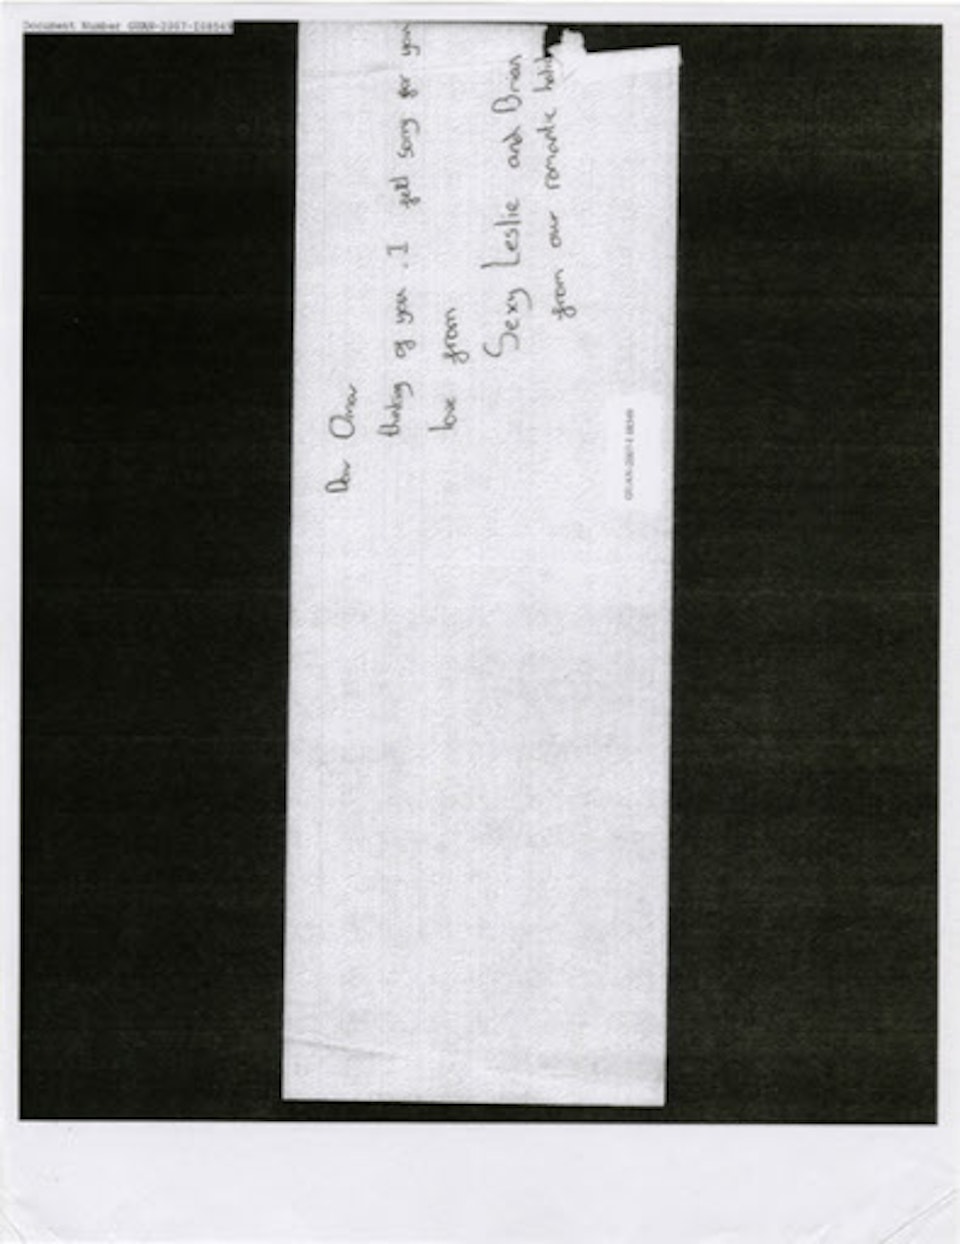 Document Number GUAN-2007-
Dear Omar
thinking of you. I feel sorry for you
love from
Sexy Leslie and Brian
from our romantic